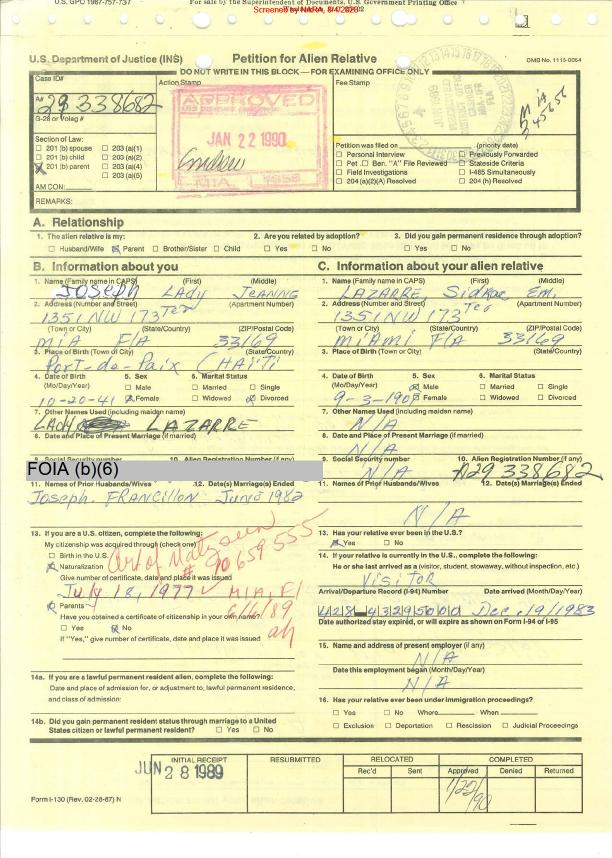 U.S. GPO 1987-757-737
For sale by the Superintendent of Documents, U.S. Government Printing Office
Screened by NARA, 8/4/2023
U.S. Department of Justice (INS) Petition for Alien Relative OMB No. 1115-0054
DO NOT WRITE IN THIS BLOCK — FOR EXAMINING OFFICE ONLY
Case ID# Action Stamp Fee Stamp
A# 29 338682
G-28 or Volag #
APPROVED
JAN 22 1990
MIA
Section of Law:
201 (b) spouse 203 (a)(1)
201 (b) child 203 (a)(2)
201 (b) parent 203 (a)(4)
203 (a)(5)
AM CON:
Petition was filed on: (priority date)
Personal Interview Previously Forwarded
Pet. Ben. "A" File Reviewed Stateside Criteria
Field Investigations I-485 Simultaneously
204 (a)(2)(A) Resolved 204 (h) Resolved
REMARKS:
A. Relationship
1. The alien relative is my: 2. Are you related by adoption? 3. Did you gain permanent residence through adoption?
Husband/Wife Parent Brother/Sister Child Yes No Yes No
B. Information about you
1. Name (Family name in CAPS) (First) (Middle)
JOSEPH LAdy JEANNE
2. Address (Number and Street) (Apartment Number)
1351 NW 173 Ter
(Town or City) (State/Country) (ZIP/Postal Code)
MiA FlA 33169
3. Place of Birth (Town or City) (State/Country)
Port-de-Paix (HAiTi
4. Date of Birth 5. Sex 6. Marital Status
(Mo/Day/Year) Male Married Single
10-20-41 Female Widowed Divorced
7. Other Names Used (including maiden name)
LADY LAZARRE
8. Date and Place of Present Marriage (if married)
9. Social Security number 10. Alien Registration Number (if any)
FOIA (b)(6)
11. Names of Prior Husbands/Wives 12. Date(s) Marriage(s) Ended
Joseph. FRANCillon June 1982
13. If you are a U.S. citizen, complete the following:
My citizenship was acquired through (check one)
Birth in the U.S.
Naturalization
Give number of certificate, date and place it was issued
# 10659555
July 18, 1977 MIA, Fl
Parents 6/6/89
Have you obtained a certificate of citizenship in your own name?
Yes No
If "Yes," give number of certificate, date and place it was issued
14a. If you are a lawful permanent resident alien, complete the following:
Date and place of admission for, or adjustment to, lawful permanent residence,
and class of admission:
14b. Did you gain permanent resident status through marriage to a United
States citizen or lawful permanent resident? Yes No
C. Information about your alien relative
1. Name (Family name in CAPS) (First) (Middle)
LAZARRE Em.
2. Address (Number and Street) (Apartment Number)
1351 NW 173 Ter
(Town or City) (State/Country) (ZIP/Postal Code)
MiAMi FlA 33169
3. Place of Birth (Town or City) (State/Country)
4. Date of Birth 5. Sex 6. Marital Status
(Mo/Day/Year) Male Married Single
Female Widowed Divorced
7. Other Names Used (including maiden name)
N/A
8. Date and Place of Present Marriage (if married)
N/A
9. Social Security number 10. Alien Registration Number (if any)
N/A A29 338682
11. Names of Prior Husbands/Wives 12. Date(s) Marriage(s) Ended
N/A
13. Has your relative ever been in the U.S.?
Yes No
14. If your relative is currently in the U.S., complete the following:
He or she last arrived as a (visitor, student, stowaway, without inspection, etc.)
Visitor
Arrival/Departure Record (I-94) Number Date arrived (Month/Day/Year)
Dec. 19/1983
Date authorized stay expired, or will expire as shown on Form I-94 or I-95
15. Name and address of present employer (if any)
N/A
Date this employment began (Month/Day/Year)
N/A
16. Has your relative ever been under immigration proceedings?
Yes No Where When
Exclusion Deportation Rescission Judicial Proceedings
INITIAL RECEIPT RESUBMITTED RELOCATED COMPLETED
Rec'd Sent Approved Denied Returned
JUN 28 1989
1/22/90
Form I-130 (Rev. 02-28-87) N